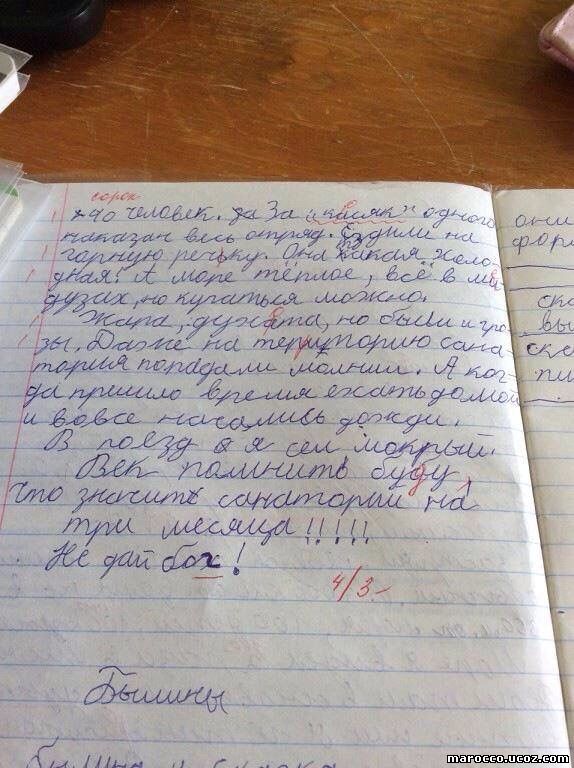 сорок
40 человек. За "касяк" одного
наказан весь отряд. Ездили на
горную речьку. Она такая холо-
дная! А море тёплое, всё в ме
дузах, но купаться можно.
Жара, духата, но были и гро-
зы. Даже на територию сана-
тория попадали молнии. А ког-
да пришло время ехать домой
и вовсе начались дожди.
В поезд я сел мокрый.
Век помнить буду,
что значить санаторий на
три месяца!!!!!
Не дай бох!
4/3-
Былины
былина и сказка
они
фор
ска
вы
ске
пи
marocco.ucoz.com